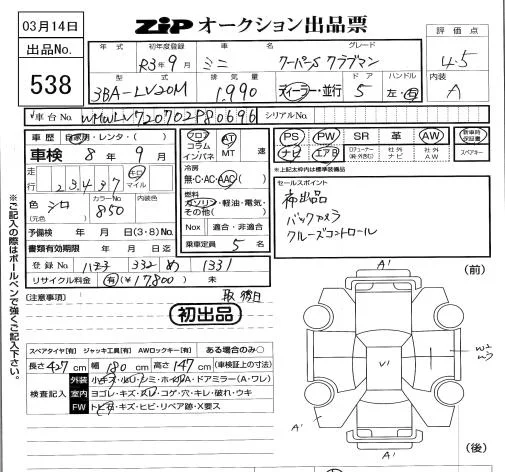 03月14日
ZiP オークション出品票
評価点
4.5
出品No.
538
年式 初年度登録 車名 グレード
R3年9月 ミニ クーパーS クラブマン
内装
A
型式 排気量 ドア ハンドル
3BA-LV20M 1,990 ディーラー・並行 5 左・右
車台No. WMWLV720702P80696 シリアルNo.
車歴 自家用・レンタ・( )
車検 8年9月
走行 23,437 キロ マイル
色 シロ (元色) カラーNo. 850 内装色
予備検 年 月 日(3・8)No.
書類有効期限 年 月 日迄
登録No 332 め 1331
リサイクル料金 有(¥17,800) 未
フロア コラム インパネ
AT MT 速
冷房
無・C・AC・AAC
燃料
ガソリン・軽油・電気・その他( )
Nox 適合・非適合
乗車定員 5 名
PS PW SR 革 AW 新車時保証書
ナビ エアB 社外ナビ 社外AW スペアキー
※上記太枠内は標準装備品
セールスポイント
初出品
バックカメラ
クルーズコントロール
(注意事項)
取 初出品
スペアタイヤ[有] ジャッキ工具[有] AWロックキー[有] ある場合のみ○
長さ 427 cm 幅 180 cm 高さ 147 cm (車検証上の寸法)
検査記入
外装 小キズ・ホイルA・ドアミラー(A・ワレ)
室内 ヨゴレ・キズ・スレ・コゲ・穴・キレ・破れ・ウキ
FW トビ石・キズ・ヒビ・リペア跡・X要ス
※ご記入の際はボールペンで強くご記入下さい。
(前)
A'
V'
W2
A'
A'
(後)